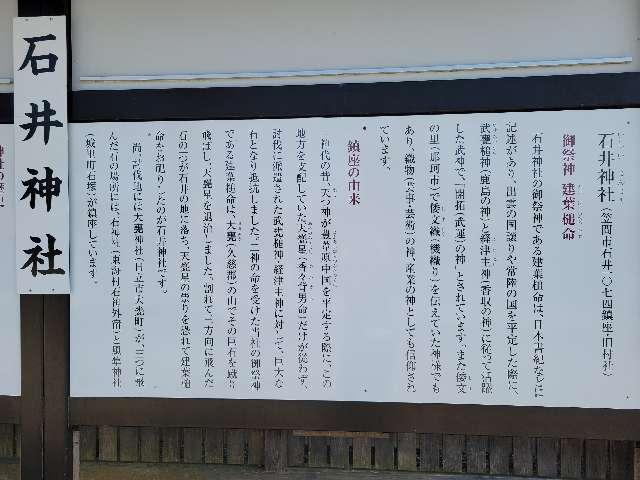 石井神社
石井神社（笠間市石井一〇七四鎮座・旧村社）
御祭神 建葉槌命
石井神社の御祭神である建葉槌命は、日本書紀などに
記述があり、出雲の国譲りや常陸の国を平定した際に、
武甕槌神（鹿島の神）と経津主神（香取の神）に従って活躍
した武神で、「開拓（武運）の神」とされています。また倭文
の里（那珂市）で倭文織（機織り）を伝えていた神様でも
あり、織物（装束・芸術）の神、産業の神としても信仰され
ています。
鎮座の由来
神代の昔、天つ神が豊葦原中国を平定する際に、この
地方を支配していた天甕星（香々背男命）だけが従わず、
討伐に派遣された武甕槌神・経津主神に対して、巨大な
石となり抵抗しました。二神の命を受けた当社の御祭神
である建葉槌命は、大甕（久慈郡）の山でその巨石を蹴り
飛ばし、天甕星を退治しました。割れて三方向に飛んだ
石の一つが石井の地に落ち、天甕星の祟りを恐れて建葉槌
命をお祀りしたのが石井神社です。
尚、討伐地には大甕神社（日立市大甕町）が、三つに飛
んだ石の場所には、石神社（東海村石神外宿）と風隼神社
（城里町石塚）が鎮座しています。